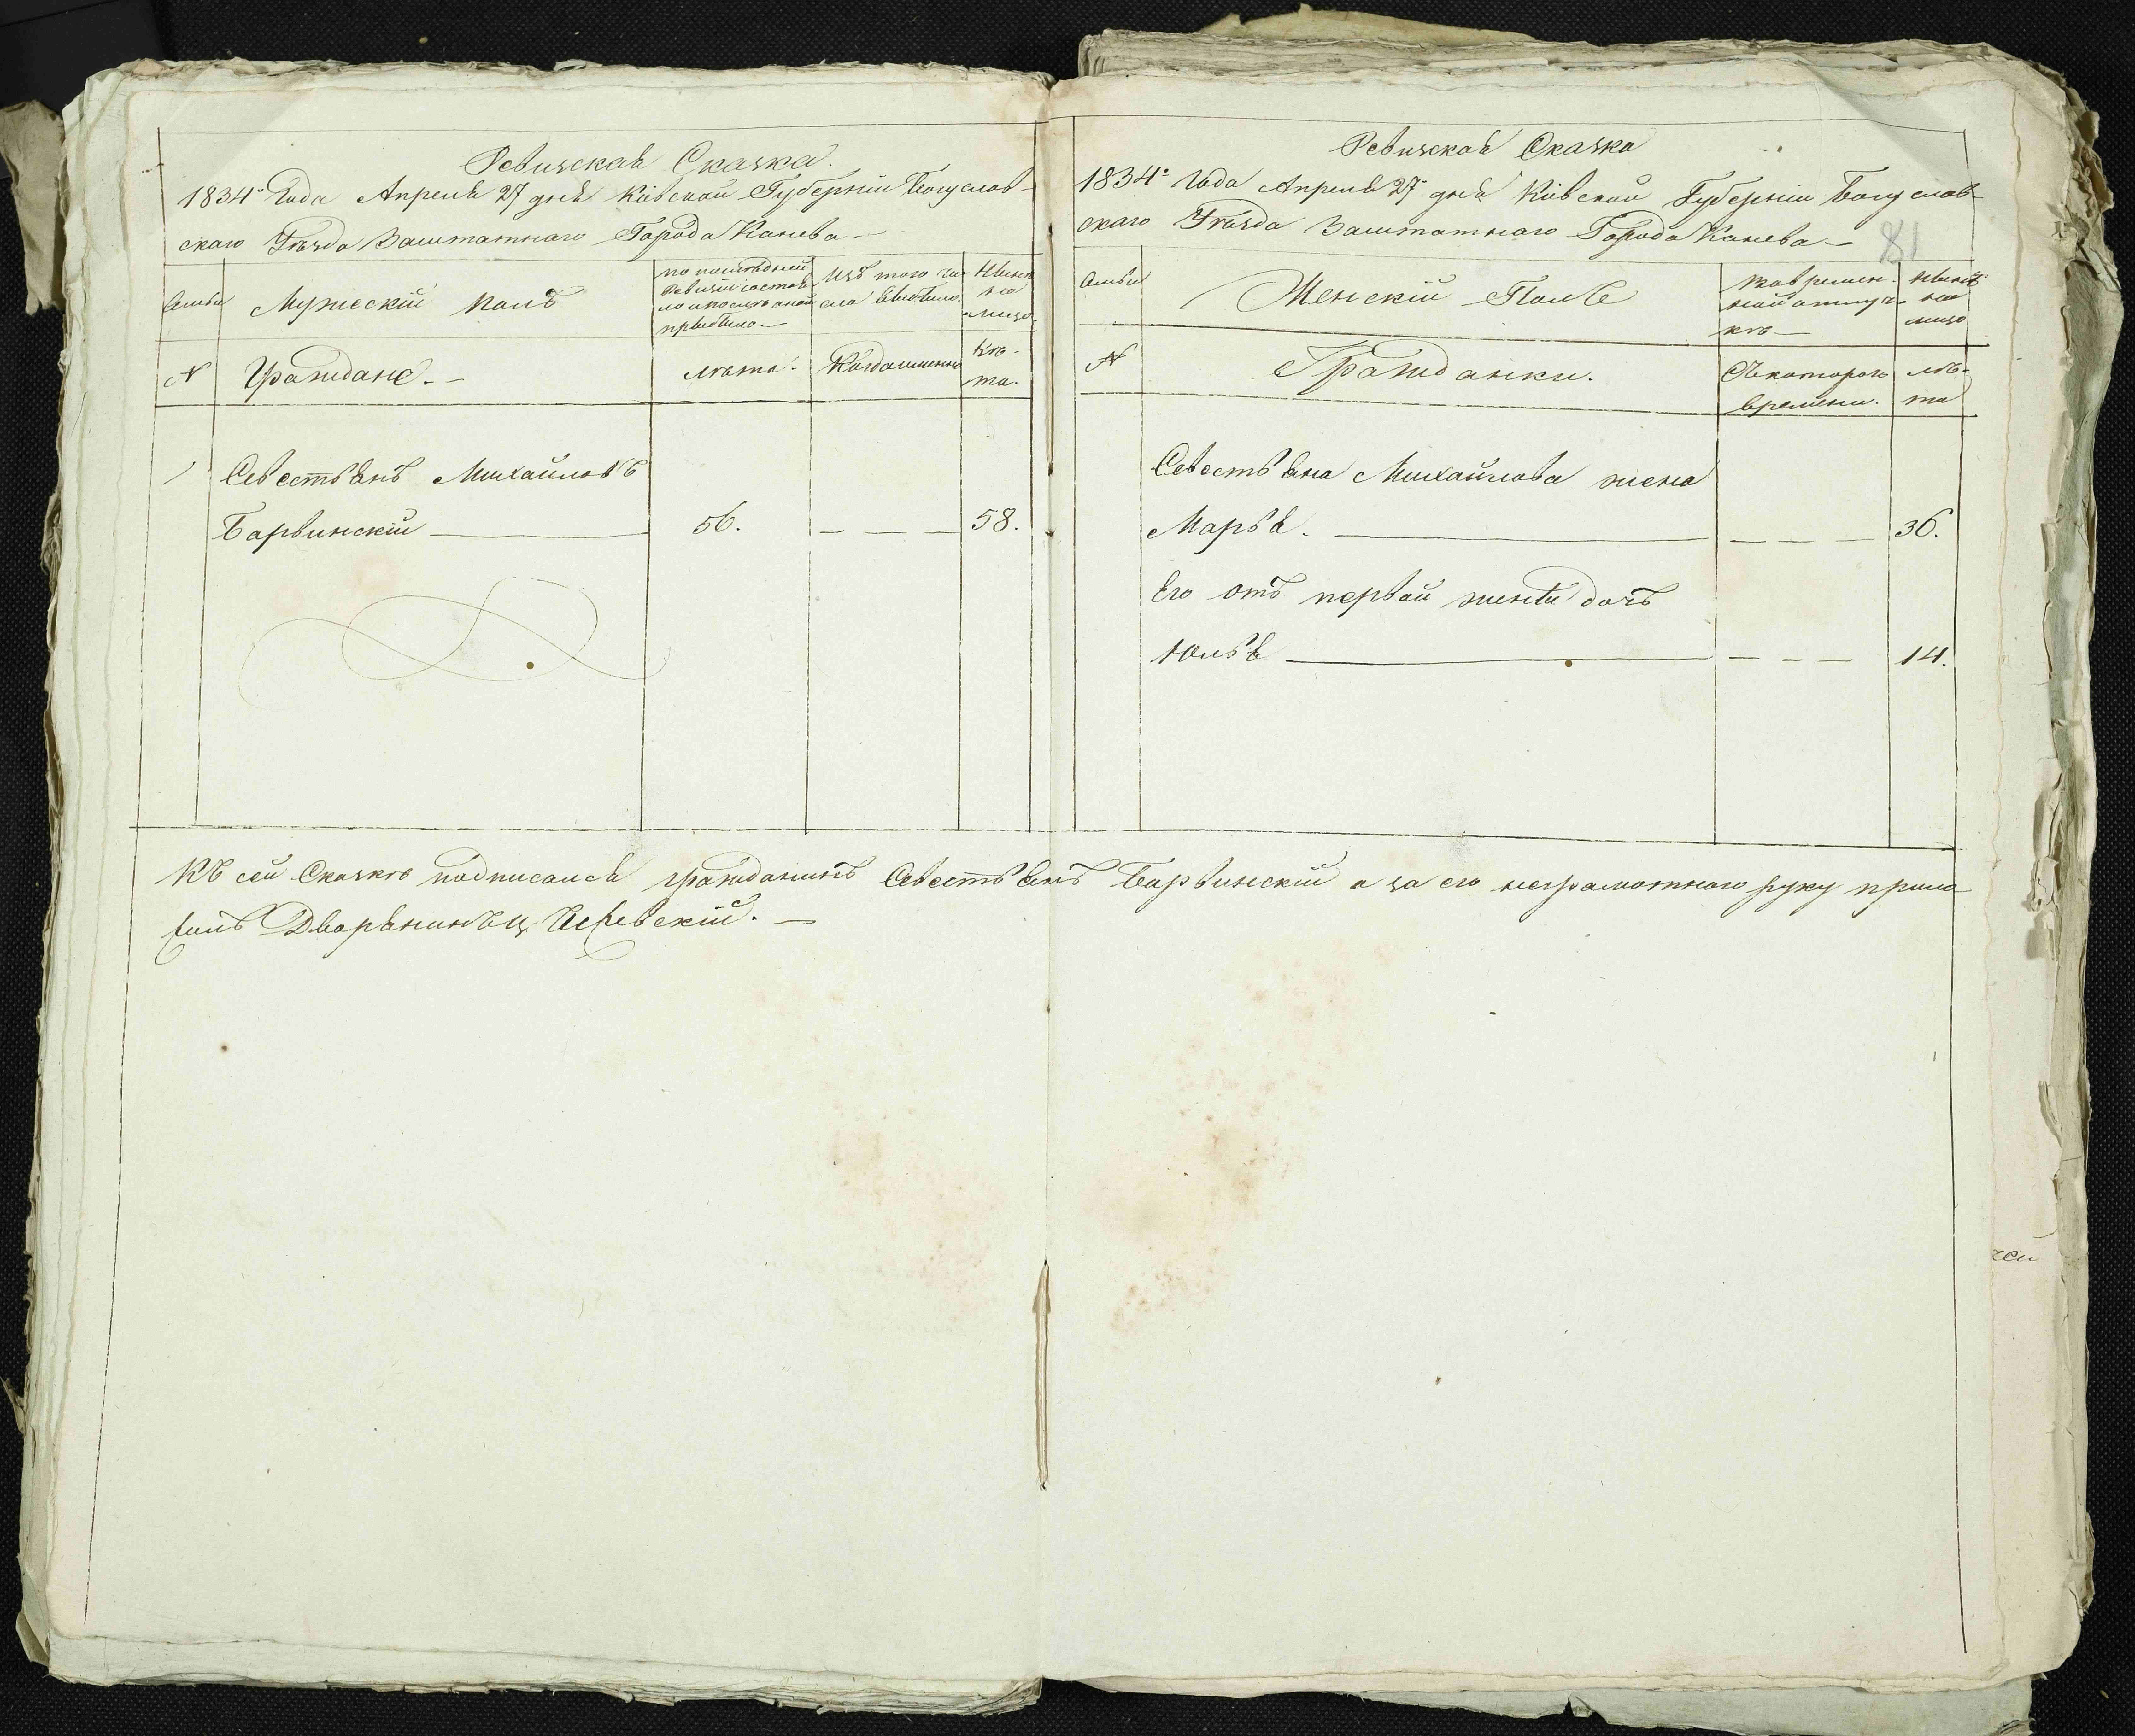 Ревизская Сказка.
1834го Года Апреля 27 дня Кіевской Губерніи Богуслав-
скаго Уѣзда Заштатнаго Города Канева —
Семьи
Мужескій полъ
по послѣдней
Ревизіи состоя
ло и послѣ оной
прибыло —
Изъ того чи-
сла выбыло.
Нынѣ
на
лицо.
№
Граждане. —
лѣта.
Когда именно
лѣ-
та.
1
Севестьянъ Михайловъ
Барвинскій
56.
58.
Ревизская Сказка
1834го Года Апреля 27 дня Кіевской Губерніи Богуслав-
скаго Уѣзда Заштатнаго Города Канева —
81
Семьи
Женскій Полъ
во времен-
ной отлуч-
кѣ —
Нынѣ
на
лицо
№
Гражданки.
Съ котораго
времени.
лѣ-
та
Севестьяна Михайлова жена
Марья.
36.
Его отъ первой жены дочъ
Юлья
14.
Къ сей Сказкѣ подписался гражданинъ Севестьянъ Барвинскій а за его неграмотнаго руку прило
жилъ Дворянинъ
чей